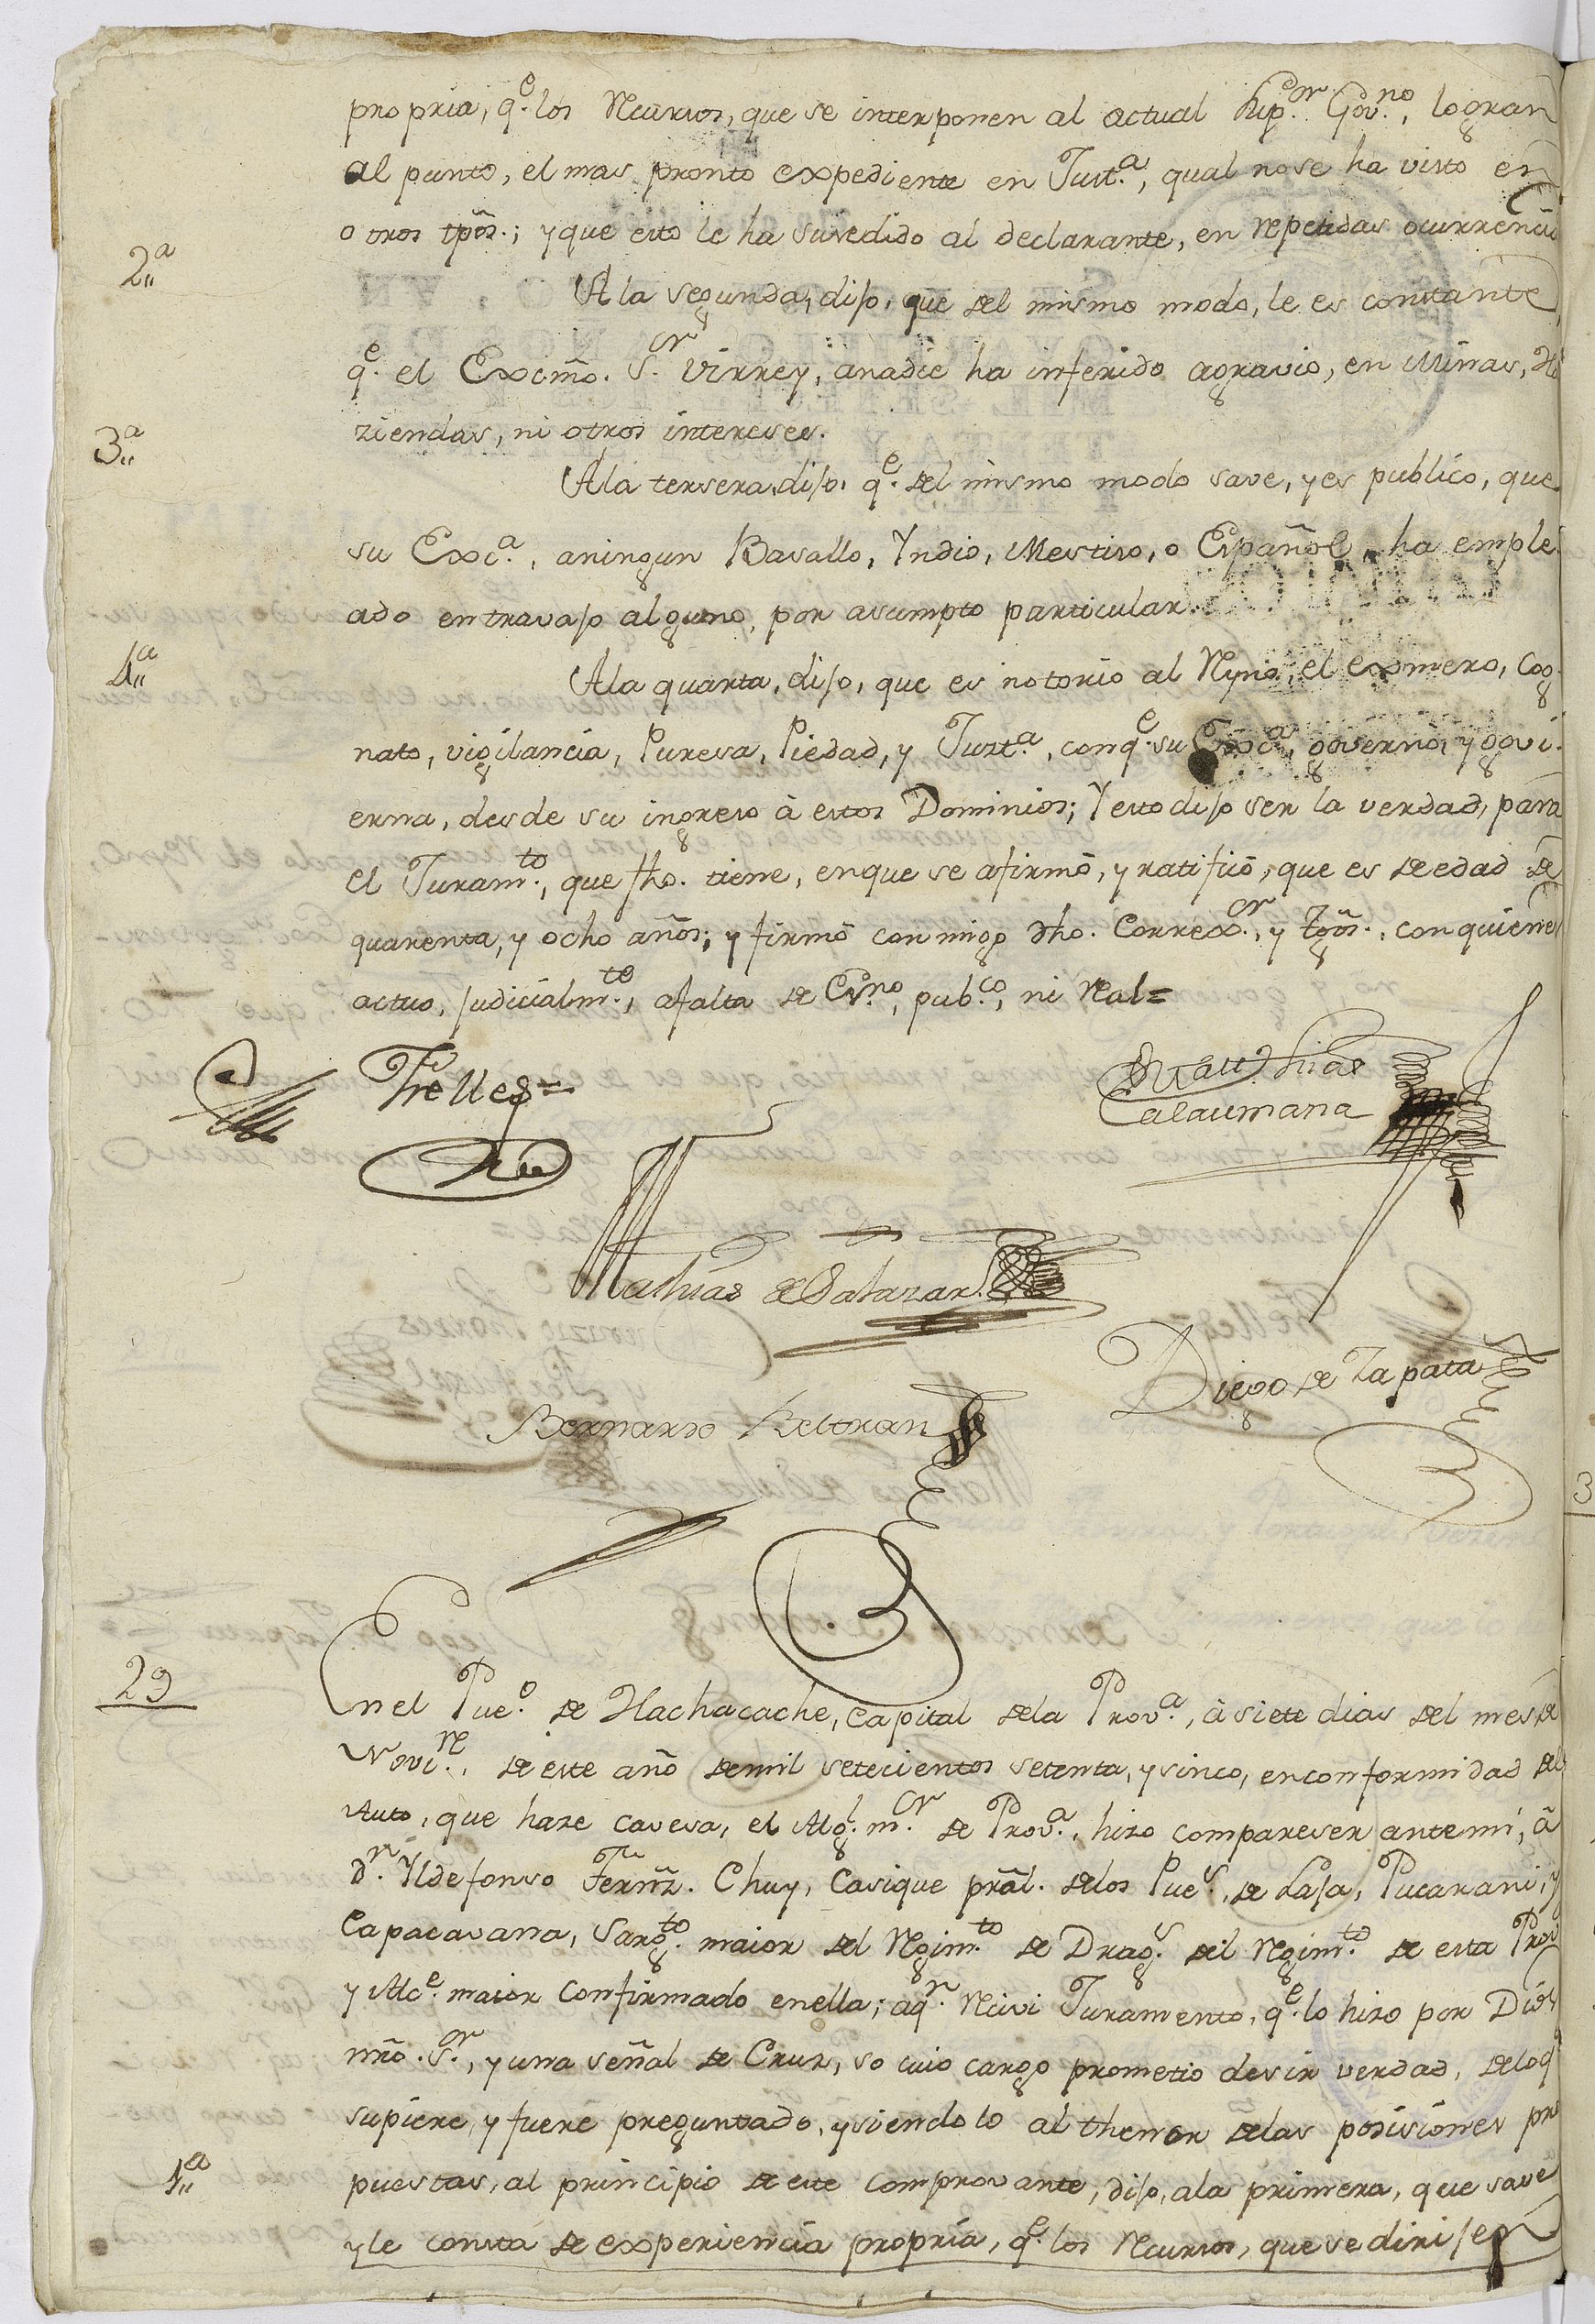 propria, q.e los Recursos, que se interponen al actual Sup.or Gov.no, logran
al punto, el mas pronto expediente en Just.a, qual nose ha visto en
otros tpõs.; y que esto le ha susedido al declarante, en repetidas ocurrencias
2.a
A la segunda, dijo, que del mismo modo, le es constante,
q.e el Excmõ. S.or Virrey, anadie ha inferido agravio, en Minas, Ha
ziendas, ni otros intereses.
3.a
A la tersera, dijo, q.e del mismo modo save, y es publico, que
su Exc.a, aningun Basallo, Yndio, Mestiso, o Español, ha emple
ado en travajo alguno, por asumpto particular.
4.a
A la quarta, dijo, que es notorio al Reyno, el exmero, Cog
nato, vigilancia, Puresa, Piedad, y Just.a, conq.e su Exc.a, governò, y govi
erna, desde su ingreso à estos Dominios; Y esto dijo ser la verdad, para
el Juram.to, que fho. tiene, enque se afirmò, y ratificò, que es de edad de
quarenta, y ocho años; y firmò conmigo dho. Correx.or, y tgõs., con quienes
actuo, judicialm.te, afalta de Es.no, pub.co, ni Real=
Thelles=
Matthias
Calaumana
Mathias de Salazar
Diego de Zapata
Bernardo Beltran
29
En el Pue.o de Hachacache, Capital dela Prov.a, à siete dias del mes de
Novi.re, de este año demil setecientos setenta, y sinco, enconformidad del
Auto, que haze cavesa, el Alg.l m.or de Prov.a, hizo compareser antemi, à
d.n Yldefonso Fernz. Chuy, Casique prãl. delos Pue.s, de Laja, Pucarani, y
Capacavana, Sarg.to maior del Regim.to de Drag.s del Regim.to de esta Prov
y Alc.e maior Confirmado enella; aq.n Recivi Juramento, q.e lo hizo por Dios
nrõ. S.or, y una señal de Cruz, so cuio cargo prometio desir verdad, delo q.e
supiere, y fuere preguntado, y siendo lo al thenor delas posisiones pro
1.a
puestas, al principio de este comprovante, dijo, ala primera, que save
y le consta de experiencia propria, q.e los Recursos, que se dirijen